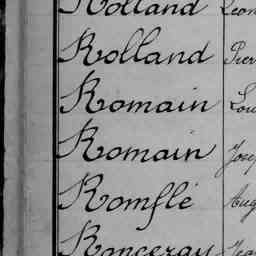 Rolland Léon
Rolland Pier
Romain Lou
Romain Jose
Romflé Aug
Ronceray Jea